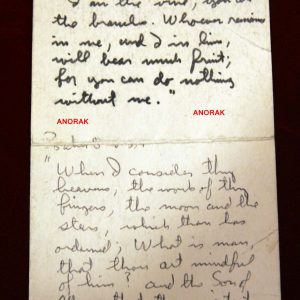 I am the vine, you
the branches. Whoever remains
in me, and I in him,
will bear much fruit;
for you can do nothing
without me."
ANORAK
ANORAK
"When I consider thy
heavens, the work of thy
fingers, the moon and the
stars, which thou has
ordained; What is man,
that thou art mindful
of him? and the Son of